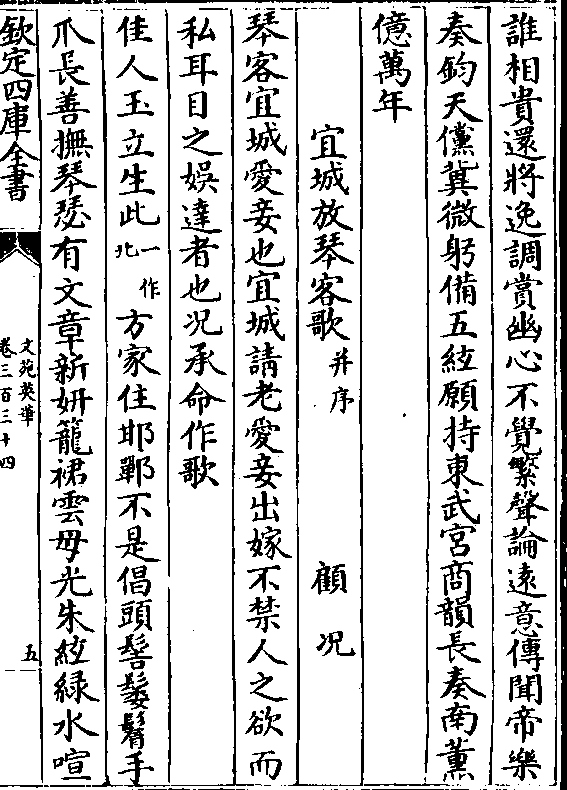 誰相貴還將逸調賞幽心不覺繁聲論遠意傳聞帝樂
奏鈞天儻冀微躬備五絃願持東武宮商韻長奏南薰
億萬年
宜城放琴客歌并序 顧况
琴客宜城愛妾也宜城請老愛妾出嫁不禁人之欲而
私耳目之娛達者也况承命作歌
佳人玉立生此一作北方家住邯鄲不是倡頭髻鬖髿手
爪長善撫琴瑟有文章新妍籠裙雲母光朱絃緑水喧
欽定四庫全書
文苑英華
卷三百三十四
五